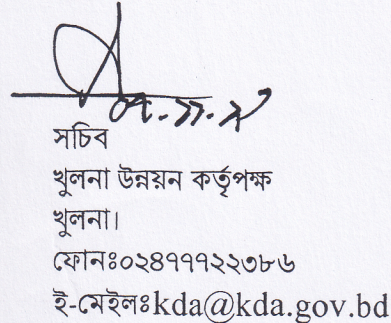 সচিব
খুলনা উন্নয়ন কর্তৃপক্ষ
খুলনা।
ফোনঃ০২৪৭৭৭২২৩৮৬
ই-মেইলঃkda@kda.gov.bd